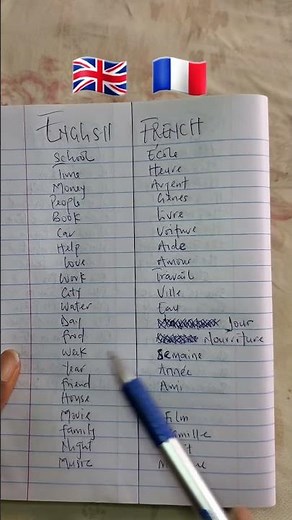 ENGLSH FRENCH
School École
Time Heure
Money Argent
People Gènes
Book Livre
Car Voiture
Help Aide
Love Amour
Work Travail
City Ville
Water Eau
Day Jour
food Nourriture
Week Semaine
Year Année
friend Ami
House
Movie Film
family
Night
Music